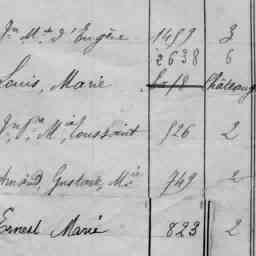 Jn Mie d'Eugène 1499 3
2638 6
Louis, Marie Château
Jn Bte Mie Toussaint 926 2
Amand, Gustave, Mie 749 2
Ernest Marie 823 2